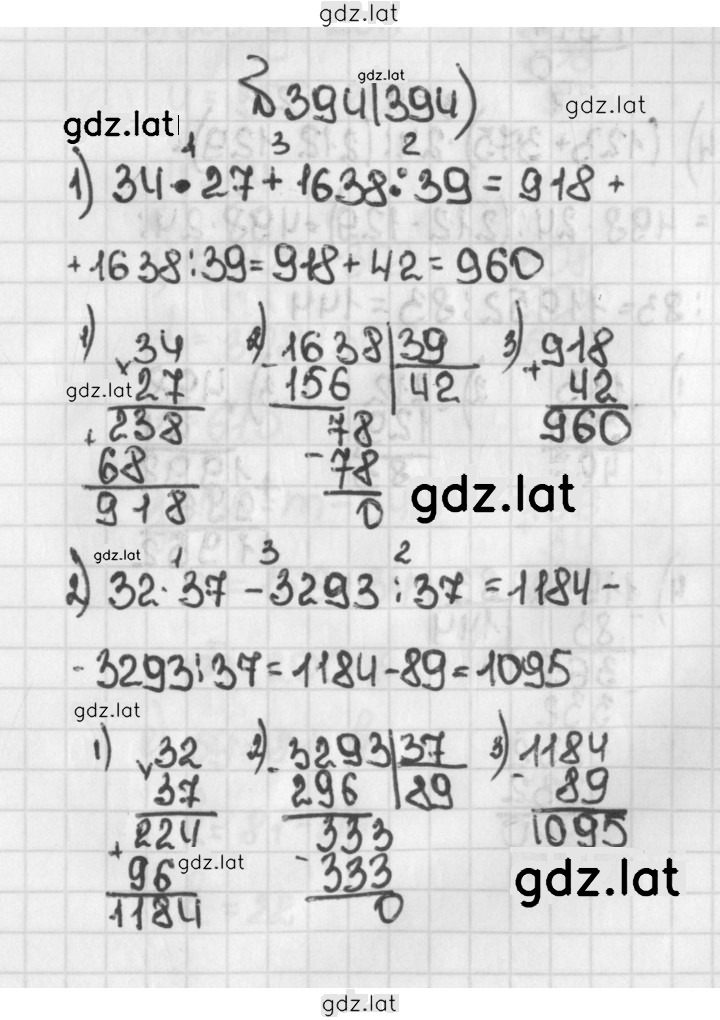 gdz.lat
gdz.lat
№ 394(394)
gdz.lat
gdz.lat
1 3 2
1) 34 · 27 + 1638 : 39 = 918 +
+ 1638 : 39 = 918 + 42 = 960
1) 34 2) 1638 39 3) 918
× 27 - 156 42 + 42
gdz.lat
238 78 960
+ 68 - 78
918 0
gdz.lat
gdz.lat
1 3 2
2) 32 · 37 - 3293 : 37 = 1184 -
- 3293 : 37 = 1184 - 89 = 1095
gdz.lat
1) 32 2) 3293 37 3) 1184
× 37 - 296 89 - 89
224 333 1095
+ 96 - 333
gdz.lat
1184 0
gdz.lat
gdz.lat